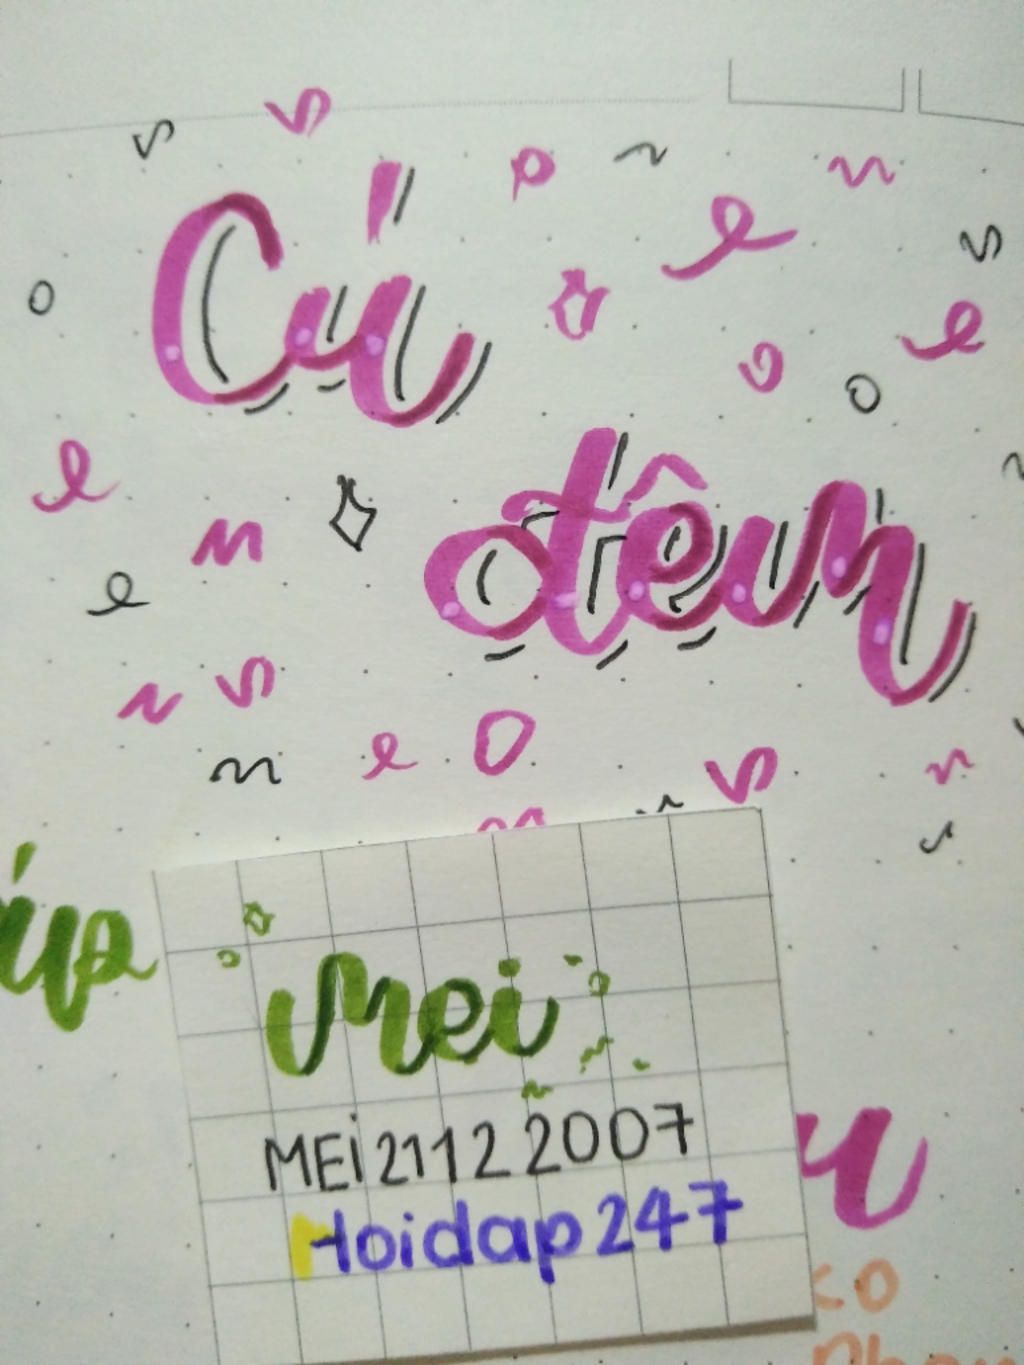 Cú
đêm
Mei
MEi21122007
Hoidap247